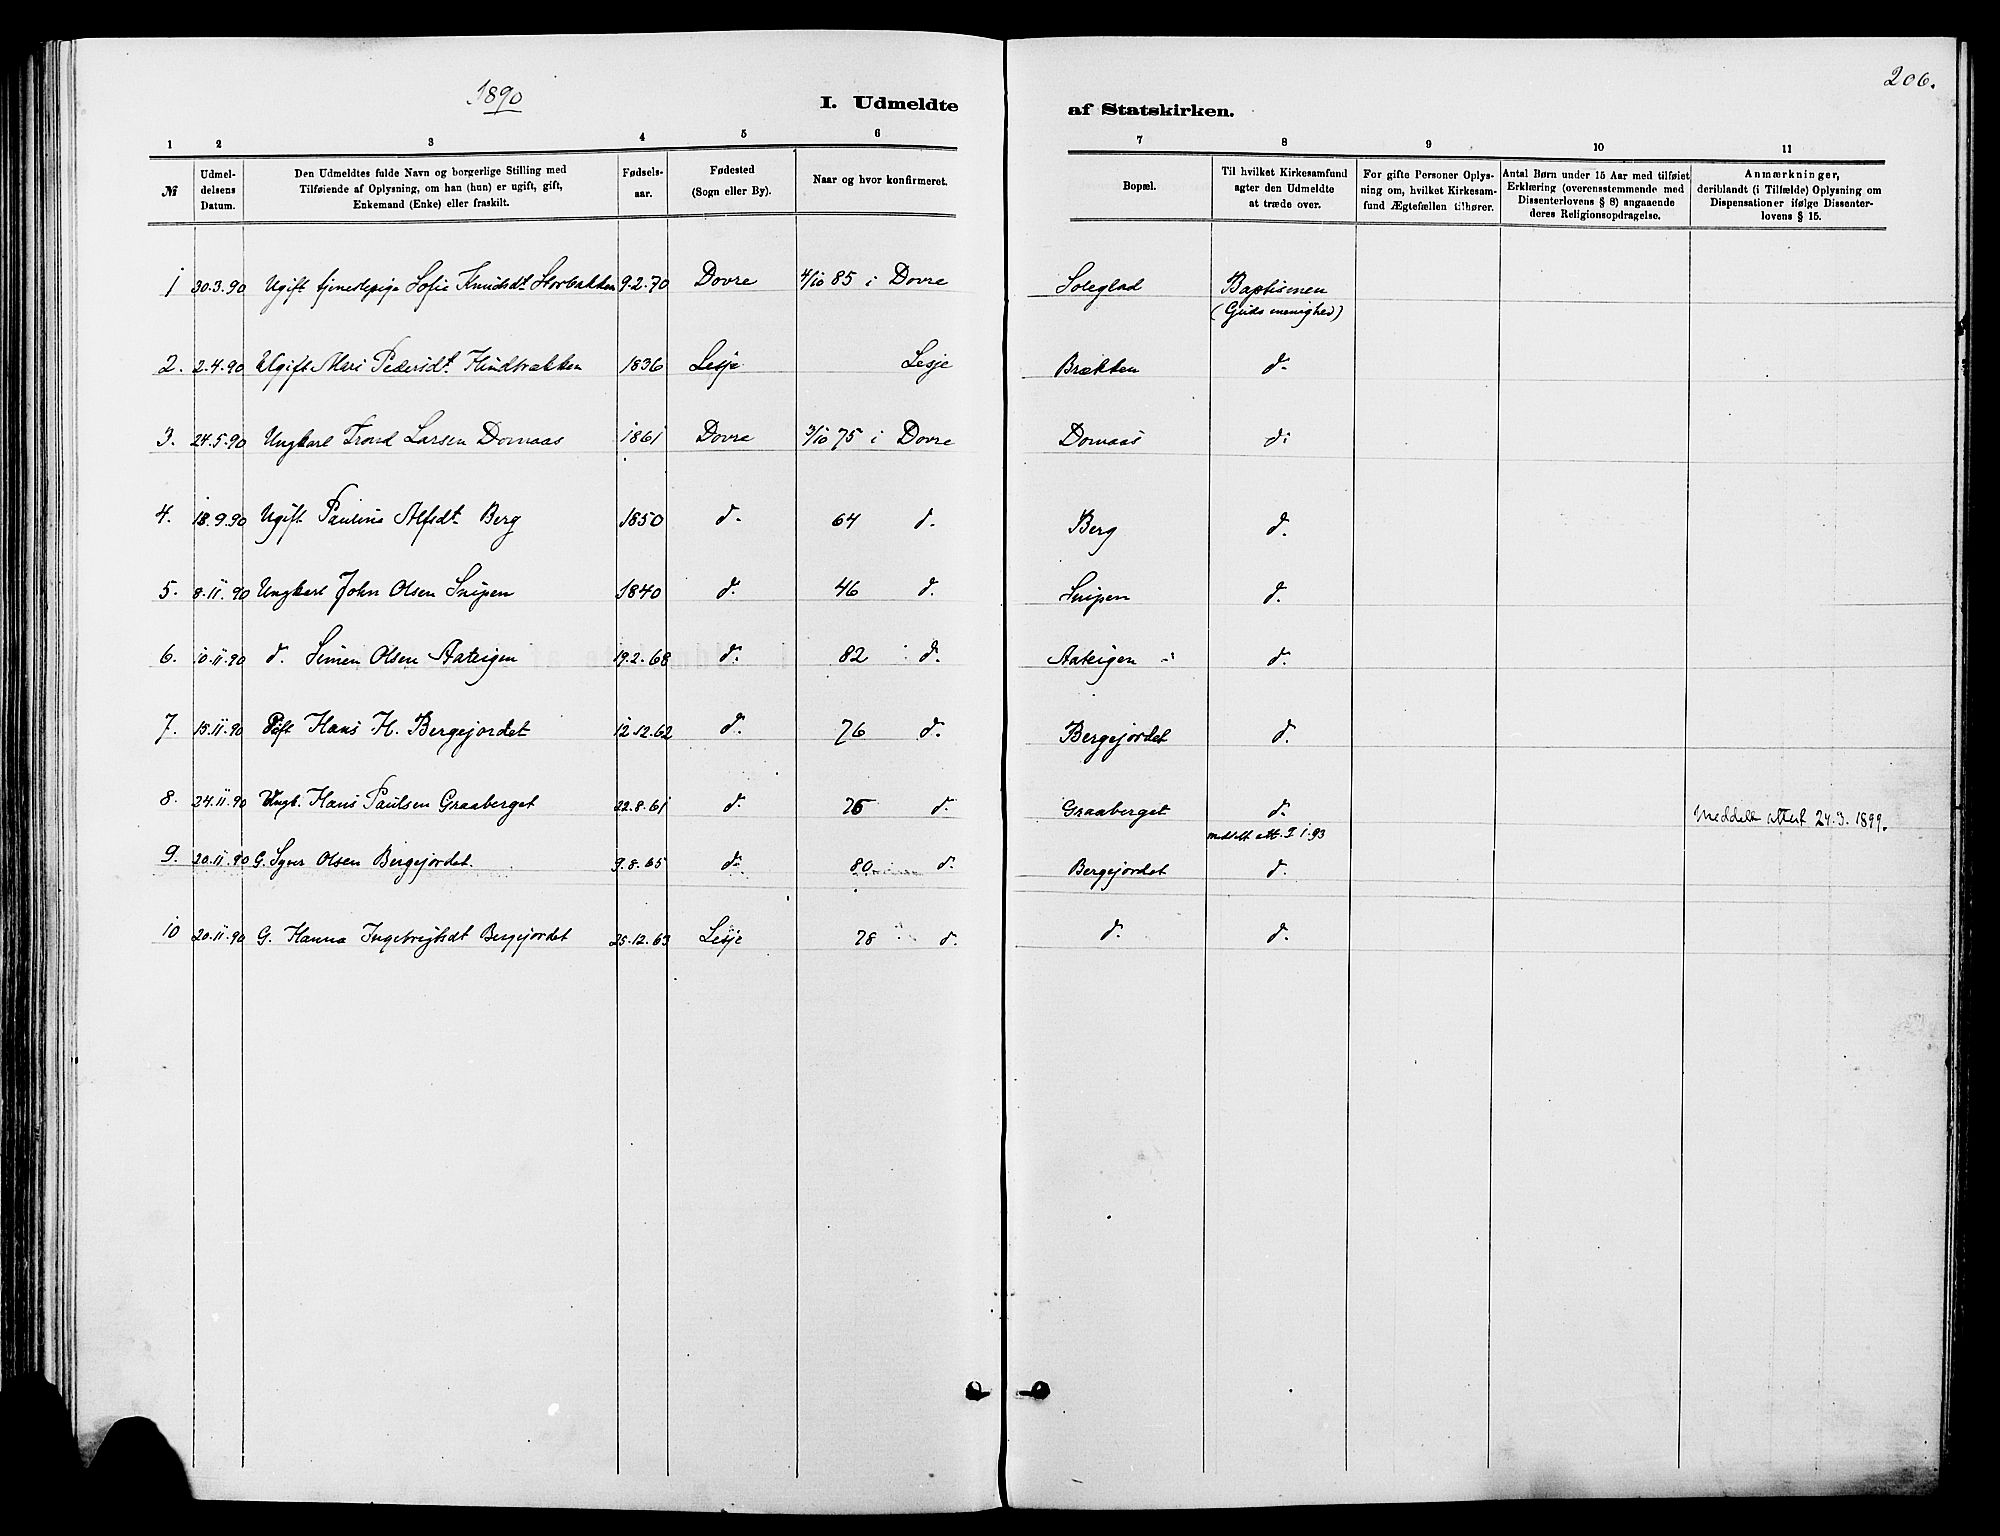 1890
206.
I. Udmeldte af Statskirken.
1 2 3 4 5 6 7 8 9 10 11
№
Udmel-
delsens
Datum.
Den Udmeldtes fulde Navn og borgerlige Stilling med
Tilføiende af Oplysning, om han (hun) er ugift, gift,
Enkemand (Enke) eller fraskilt.
Fødsels-
aar.
Fødested
(Sogn eller By).
Naar og hvor konfirmeret.
Bopæl.
Til hvilket Kirkesamfund
agter den Udmeldte
at træde over.
For gifte Personer Oplys-
ning om, hvilket Kirkesam-
fund Ægtefællen tilhører.
Antal Børn under 15 Aar med tilføiet
Erklæring (overensstemmende med
Dissenterlovens § 8) angaaende
deres Religionsopdragelse.
Anmærkninger,
deriblandt (i Tilfælde) Oplysning om
Dispensationer ifølge Dissenter-
lovens § 15.
1 30.3.90 Ugift tjenestepige Sofie Knudsdt. Storbakken 9.2.70 Dovre 4/10 85 i Dovre Soleglad Baptismen
(Guds menighed)
2. 2.4.90 Ugift Mari Pedersdt. 1836 Lesje Lesje Brækken d.
3. 24.5.90 Ungkarl Trond Larsen Domaas 1861 Dovre 3/10 75 i Dovre Domaas d.
4. 18.9.90 Ugift Pauline Alfsdt. Berg 1850 d. 64 d. Berg d.
5. 8.11.90 Ungkarl John Olsen Snipen 1840 d. 46 d. Snipen d.
6. 10.11.90 d. Simen Olsen Aateigen 19.2.68 d. 82 d. Aateigen d.
7. 15.11.90 Hans H. Bergejordet 12.12.62 d. 76 d. Bergejordet d.
8. 24.11.90 Ungk. Hans Paulsen Graaberget 22.8.61 d. 76 d. Graaberget d. Meddelt attest 24.3.1899.
meddelt att. 2.1.93
9. 20.11.90 G. Syver Olsen Bergejordet. 9.8.65 d. 80 d. Bergejordet d.
10 20.11.90 G. Hanna Ingebrigtsdt Bergejordet 25.12.63 Lesje 78 d. d. d.